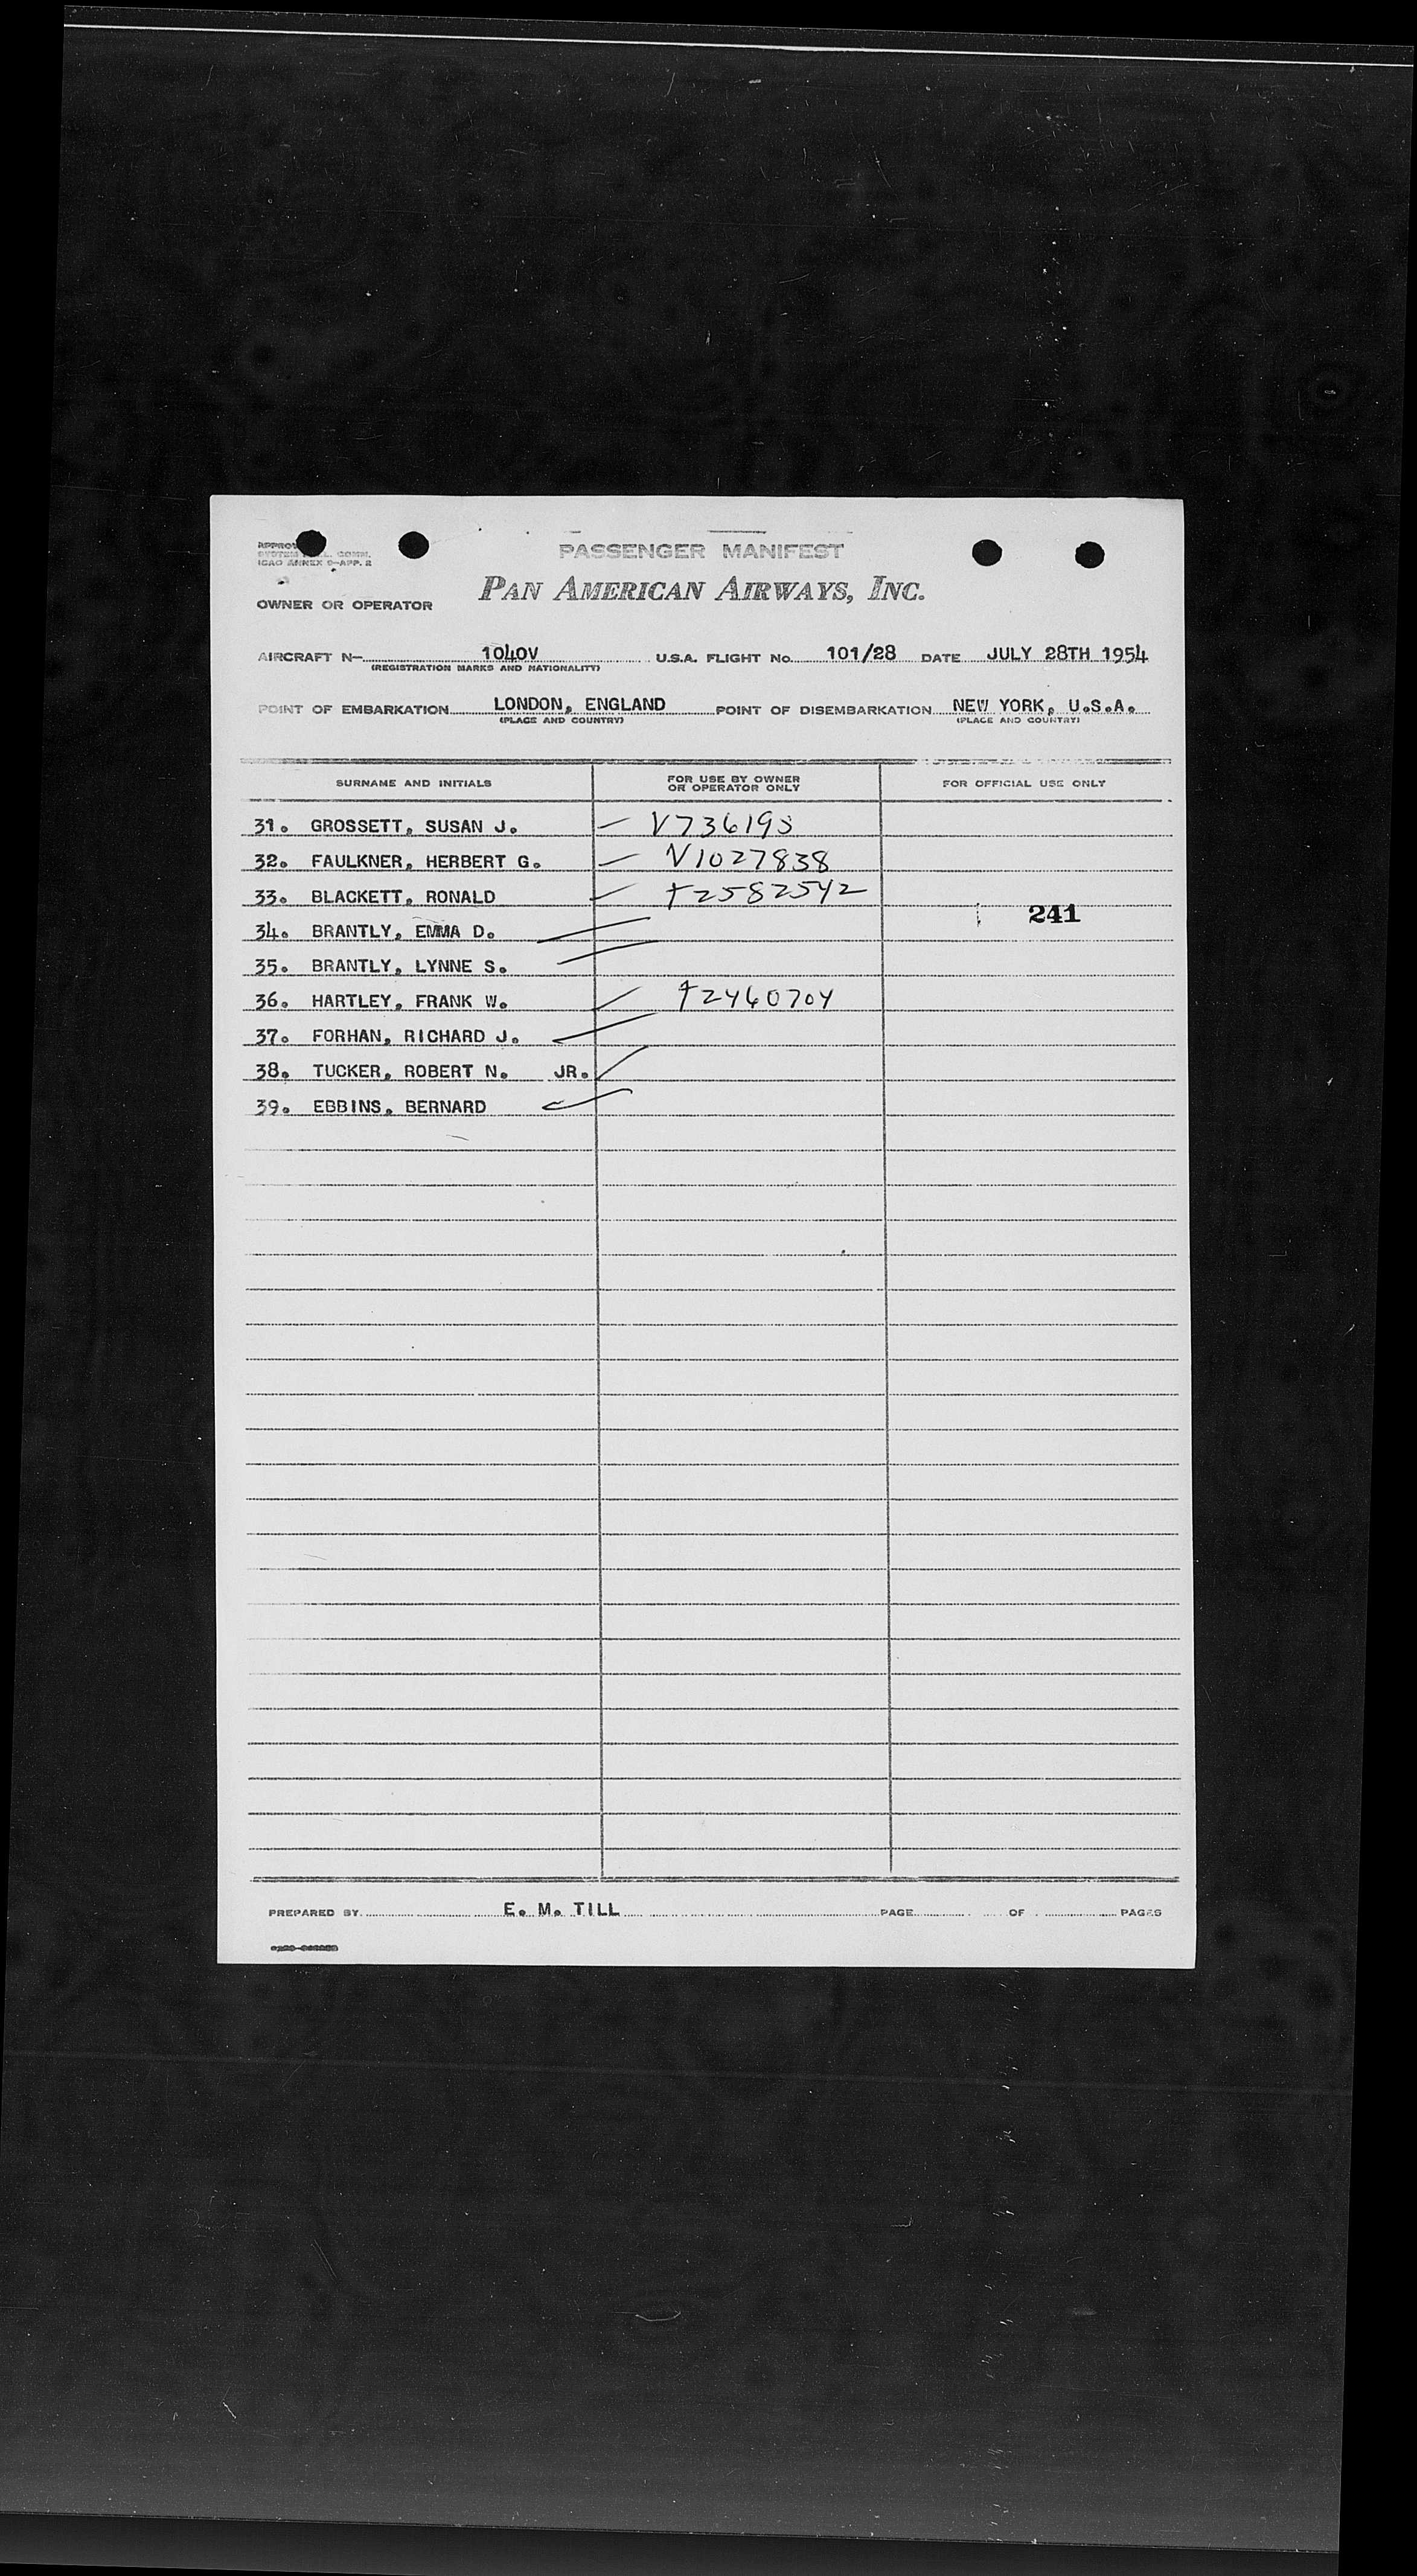 SYSTEM COMM.
ICAO ANNEX 9-APP. 2
PASSENGER MANIFEST
PAN AMERICAN AIRWAYS, INC.
OWNER OR OPERATOR
AIRCRAFT N- 1040V U.S.A. FLIGHT No. 101/28 DATE JULY 28TH 1954
(REGISTRATION MARKS AND NATIONALITY)
POINT OF EMBARKATION LONDON, ENGLAND POINT OF DISEMBARKATION NEW YORK, U.S.A.
(PLACE AND COUNTRY) (PLACE AND COUNTRY)
SURNAME AND INITIALS FOR USE BY OWNER OR OPERATOR ONLY FOR OFFICIAL USE ONLY
31. GROSSETT, SUSAN J. V736195
32. FAULKNER, HERBERT G. V1027838
33. BLACKETT, RONALD T2582542
241
34. BRANTLY, EMMA D.
35. BRANTLY, LYNNE S.
36. HARTLEY, FRANK W. T2460704
37. FORHAN, RICHARD J.
38. TUCKER, ROBERT N. JR.
39. EBBINS, BERNARD
PREPARED BY E. M. TILL PAGE OF PAGES